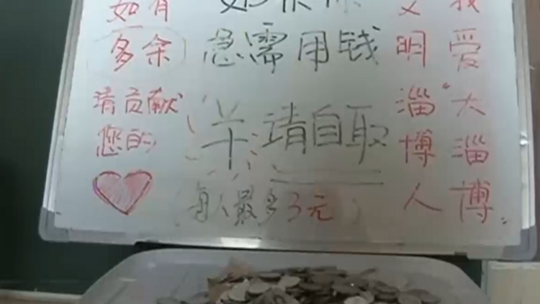 如有
多余
请贡献
您的
急需用钱
请自取
每人最多3元
文明淄博人
我爱"大淄博"